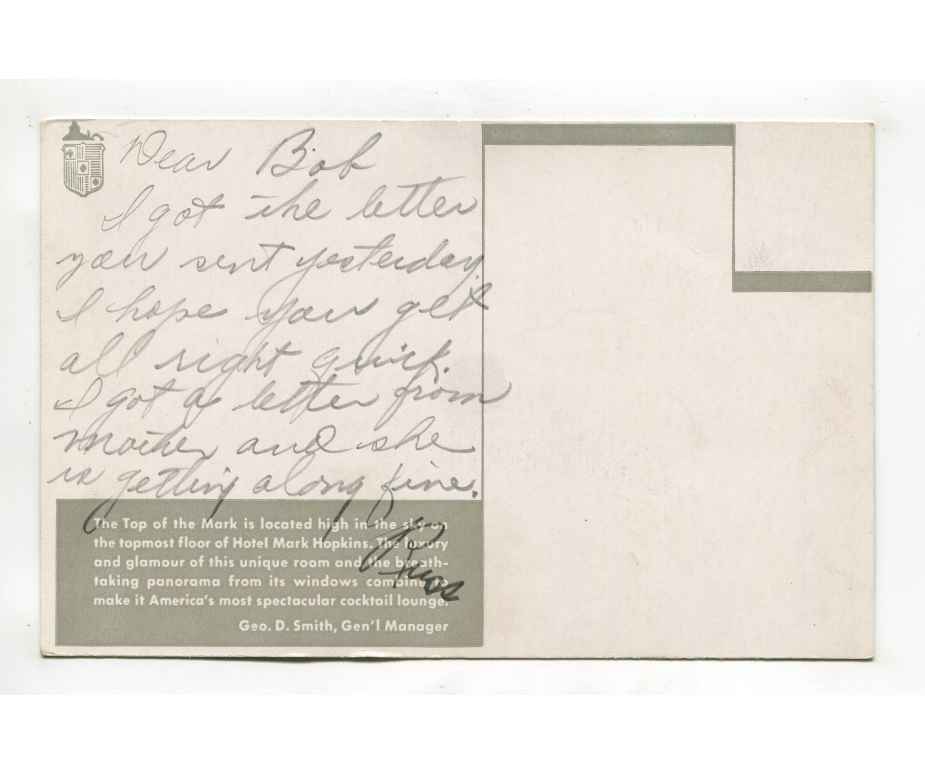 Dear Bob
I got the letter
you sent yesterday.
I hope you get
all right quick.
I got a letter from
mother and she
is getting along fine.
Russ
The Top of the Mark is located high in the sky on
the topmost floor of Hotel Mark Hopkins. The luxury
and glamour of this unique room and the breath-
taking panorama from its windows combine to
make it America's most spectacular cocktail lounge.
Geo. D. Smith, Gen'l Manager